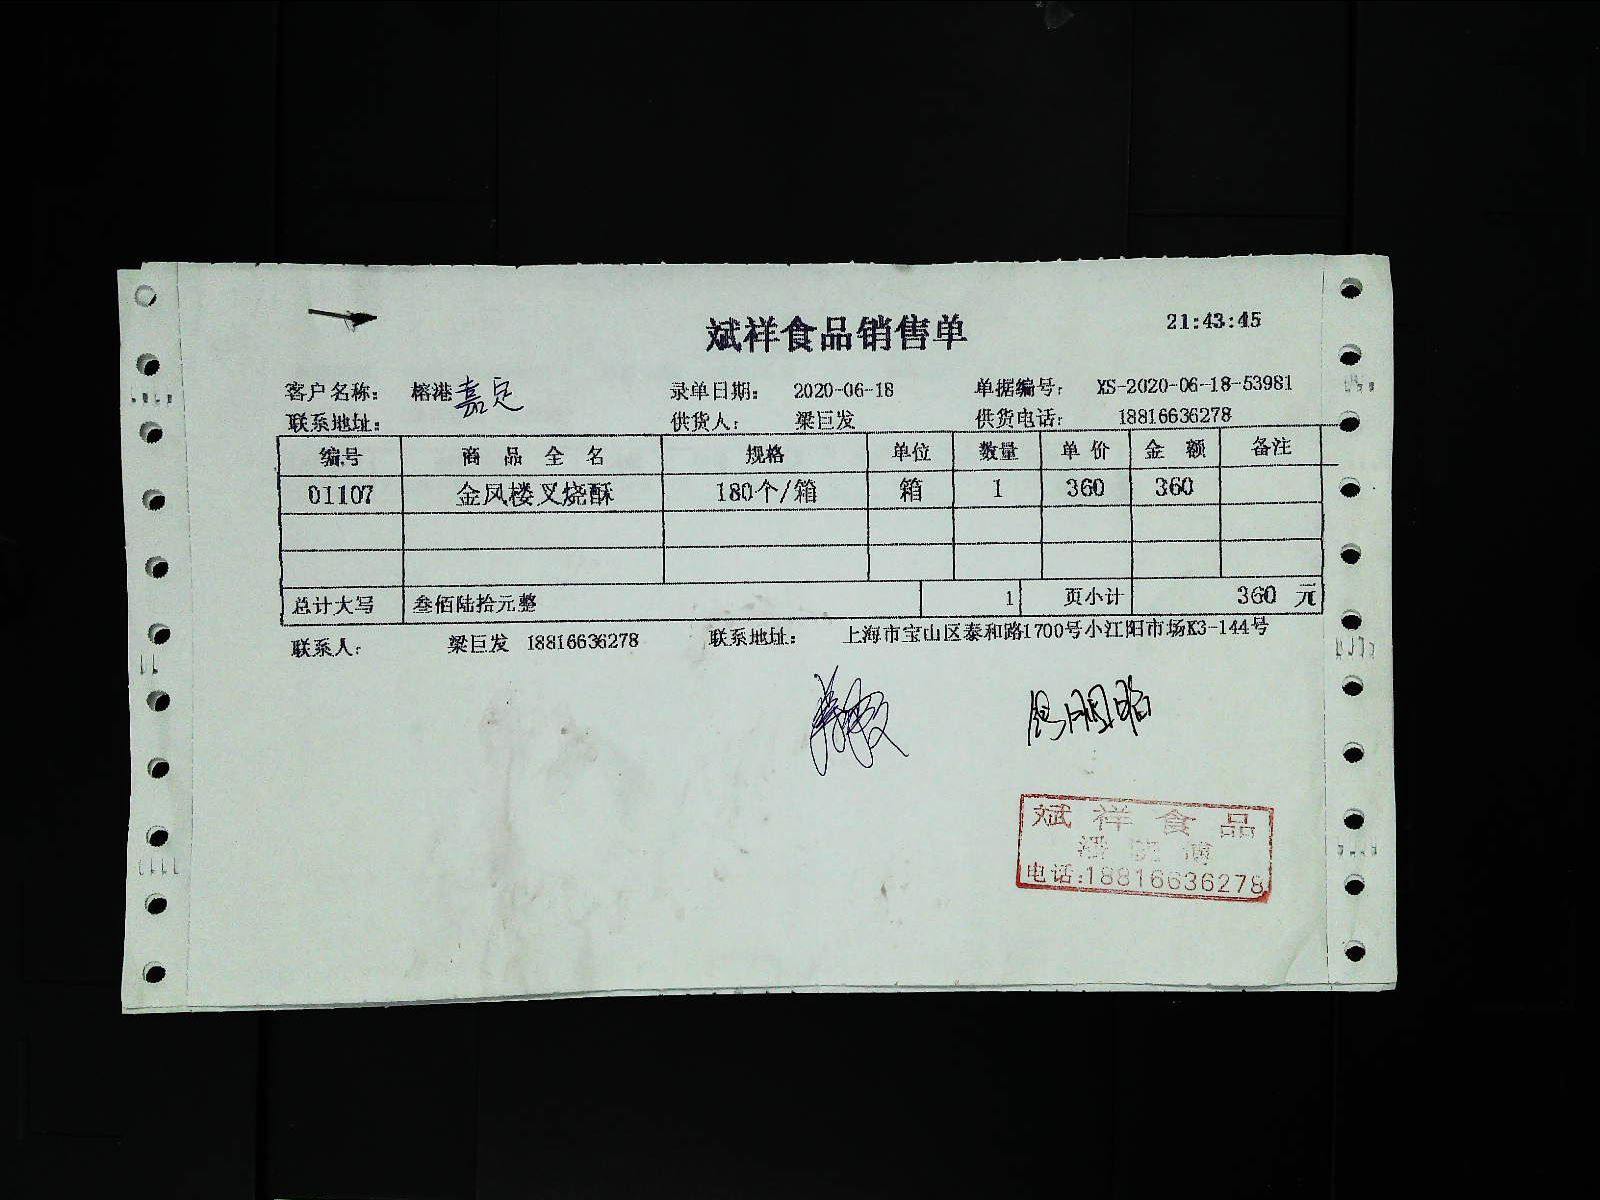 斌祥食品销售单 21:43:45
客户名称： 榕港嘉定 录单日期： 2020-06-18 单据编号： XS-2020-06-18-53981
联系地址： 供货人： 梁巨发 供货电话： 18816636278
编号 商品全名 规格 单位 数量 单价 金额 备注
01107 金凤楼叉烧酥 180个/箱 箱 1 360 360
总计大写 叁佰陆拾元整 1 页小计 360 元
联系人： 梁巨发 18816636278 联系地址： 上海市宝山区泰和路1700号小江阳市场K3-144号
斌祥食品
电话:18816636278